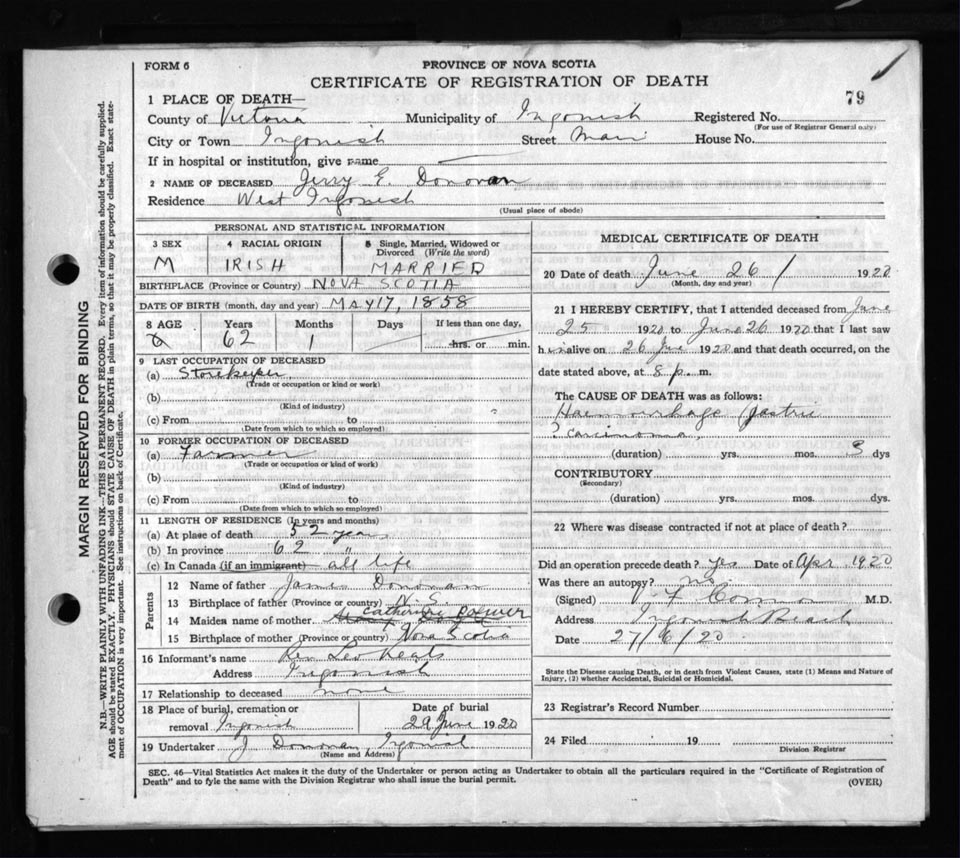 FORM 6
PROVINCE OF NOVA SCOTIA
CERTIFICATE OF REGISTRATION OF DEATH
79
1 PLACE OF DEATH—
County of Victoria Municipality of Ingonish Registered No.
(For use of Registrar General only)
City or Town Ingonish Street Main House No.
If in hospital or institution, give name
2 NAME OF DECEASED Jerry E. Donovan
Residence West Ingonish
(Usual place of abode)
PERSONAL AND STATISTICAL INFORMATION
3 SEX 4 RACIAL ORIGIN 5 Single, Married, Widowed or Divorced (Write the word)
M IRISH MARRIED
BIRTHPLACE (Province or Country) NOVA SCOTIA
DATE OF BIRTH (month, day and year) MAY 17, 1858
8 AGE Years Months Days If less than one day,
6 62 1 hrs. or min.
9 LAST OCCUPATION OF DECEASED
(a) Storekeeper
(Trade or occupation or kind or work)
(b)
(Kind of industry)
(c) From to
(Date from which to which so employed)
10 FORMER OCCUPATION OF DECEASED
(a) Farmer
(Trade or occupation or kind of work)
(b)
(Kind of industry)
(c) From to
(Date from which to which so employed)
11 LENGTH OF RESIDENCE (In years and months)
(a) At place of death 52 years
(b) In province 62 "
(c) In Canada (if an immigrant) all life
Parents
12 Name of father James Donovan
13 Birthplace of father (Province or country) N.S.
14 Maiden name of mother Catherine
15 Birthplace of mother (Province or country) Nova Scotia
16 Informant's name Rev Leo Keats
Address Ingonish
17 Relationship to deceased none
18 Place of burial, cremation or removal Ingonish Date of burial 29 June 1920
19 Undertaker J Donovan Ingonish
(Name and Address)
MEDICAL CERTIFICATE OF DEATH
20 Date of death June 26 / 1920
(Month, day and year)
21 I HEREBY CERTIFY, that I attended deceased from June
25 1920 to June 26 1920 that I last saw
him alive on 26 June 1920 and that death occurred, on the
date stated above, at 8 p. m.
The CAUSE OF DEATH was as follows:
Haemorrhage Gastric
? carcinoma
(duration) yrs. mos. 3 dys
CONTRIBUTORY
(Secondary)
(duration) yrs. mos. dys.
22 Where was disease contracted if not at place of death?
Did an operation precede death? yes Date of Apr 1920
Was there an autopsy? no
(Signed) M.D.
Address Ingonish Beach
Date 27/6/20
State the Disease causing Death, or in death from Violent Causes, state (1) Means and Nature of
Injury, (2) whether Accidental, Suicidal or Homicidal.
23 Registrar's Record Number
24 Filed 19
Division Registrar
SEC. 46—Vital Statistics Act makes it the duty of the Undertaker or person acting as Undertaker to obtain all the particulars required in the "Certificate of Registration of
Death" and to fyle the same with the Division Registrar who shall issue the burial permit.
(OVER)
MARGIN RESERVED FOR BINDING
N.B.—WRITE PLAINLY WITH UNFADING INK—THIS IS A PERMANENT RECORD. Every item of information should be carefully supplied.
AGE should be stated EXACTLY. PHYSICIANS should STATE CAUSE OF DEATH in plain terms, so that it may be properly classified. Exact state-
ment of OCCUPATION is very important. See instructions on back of Certificate.